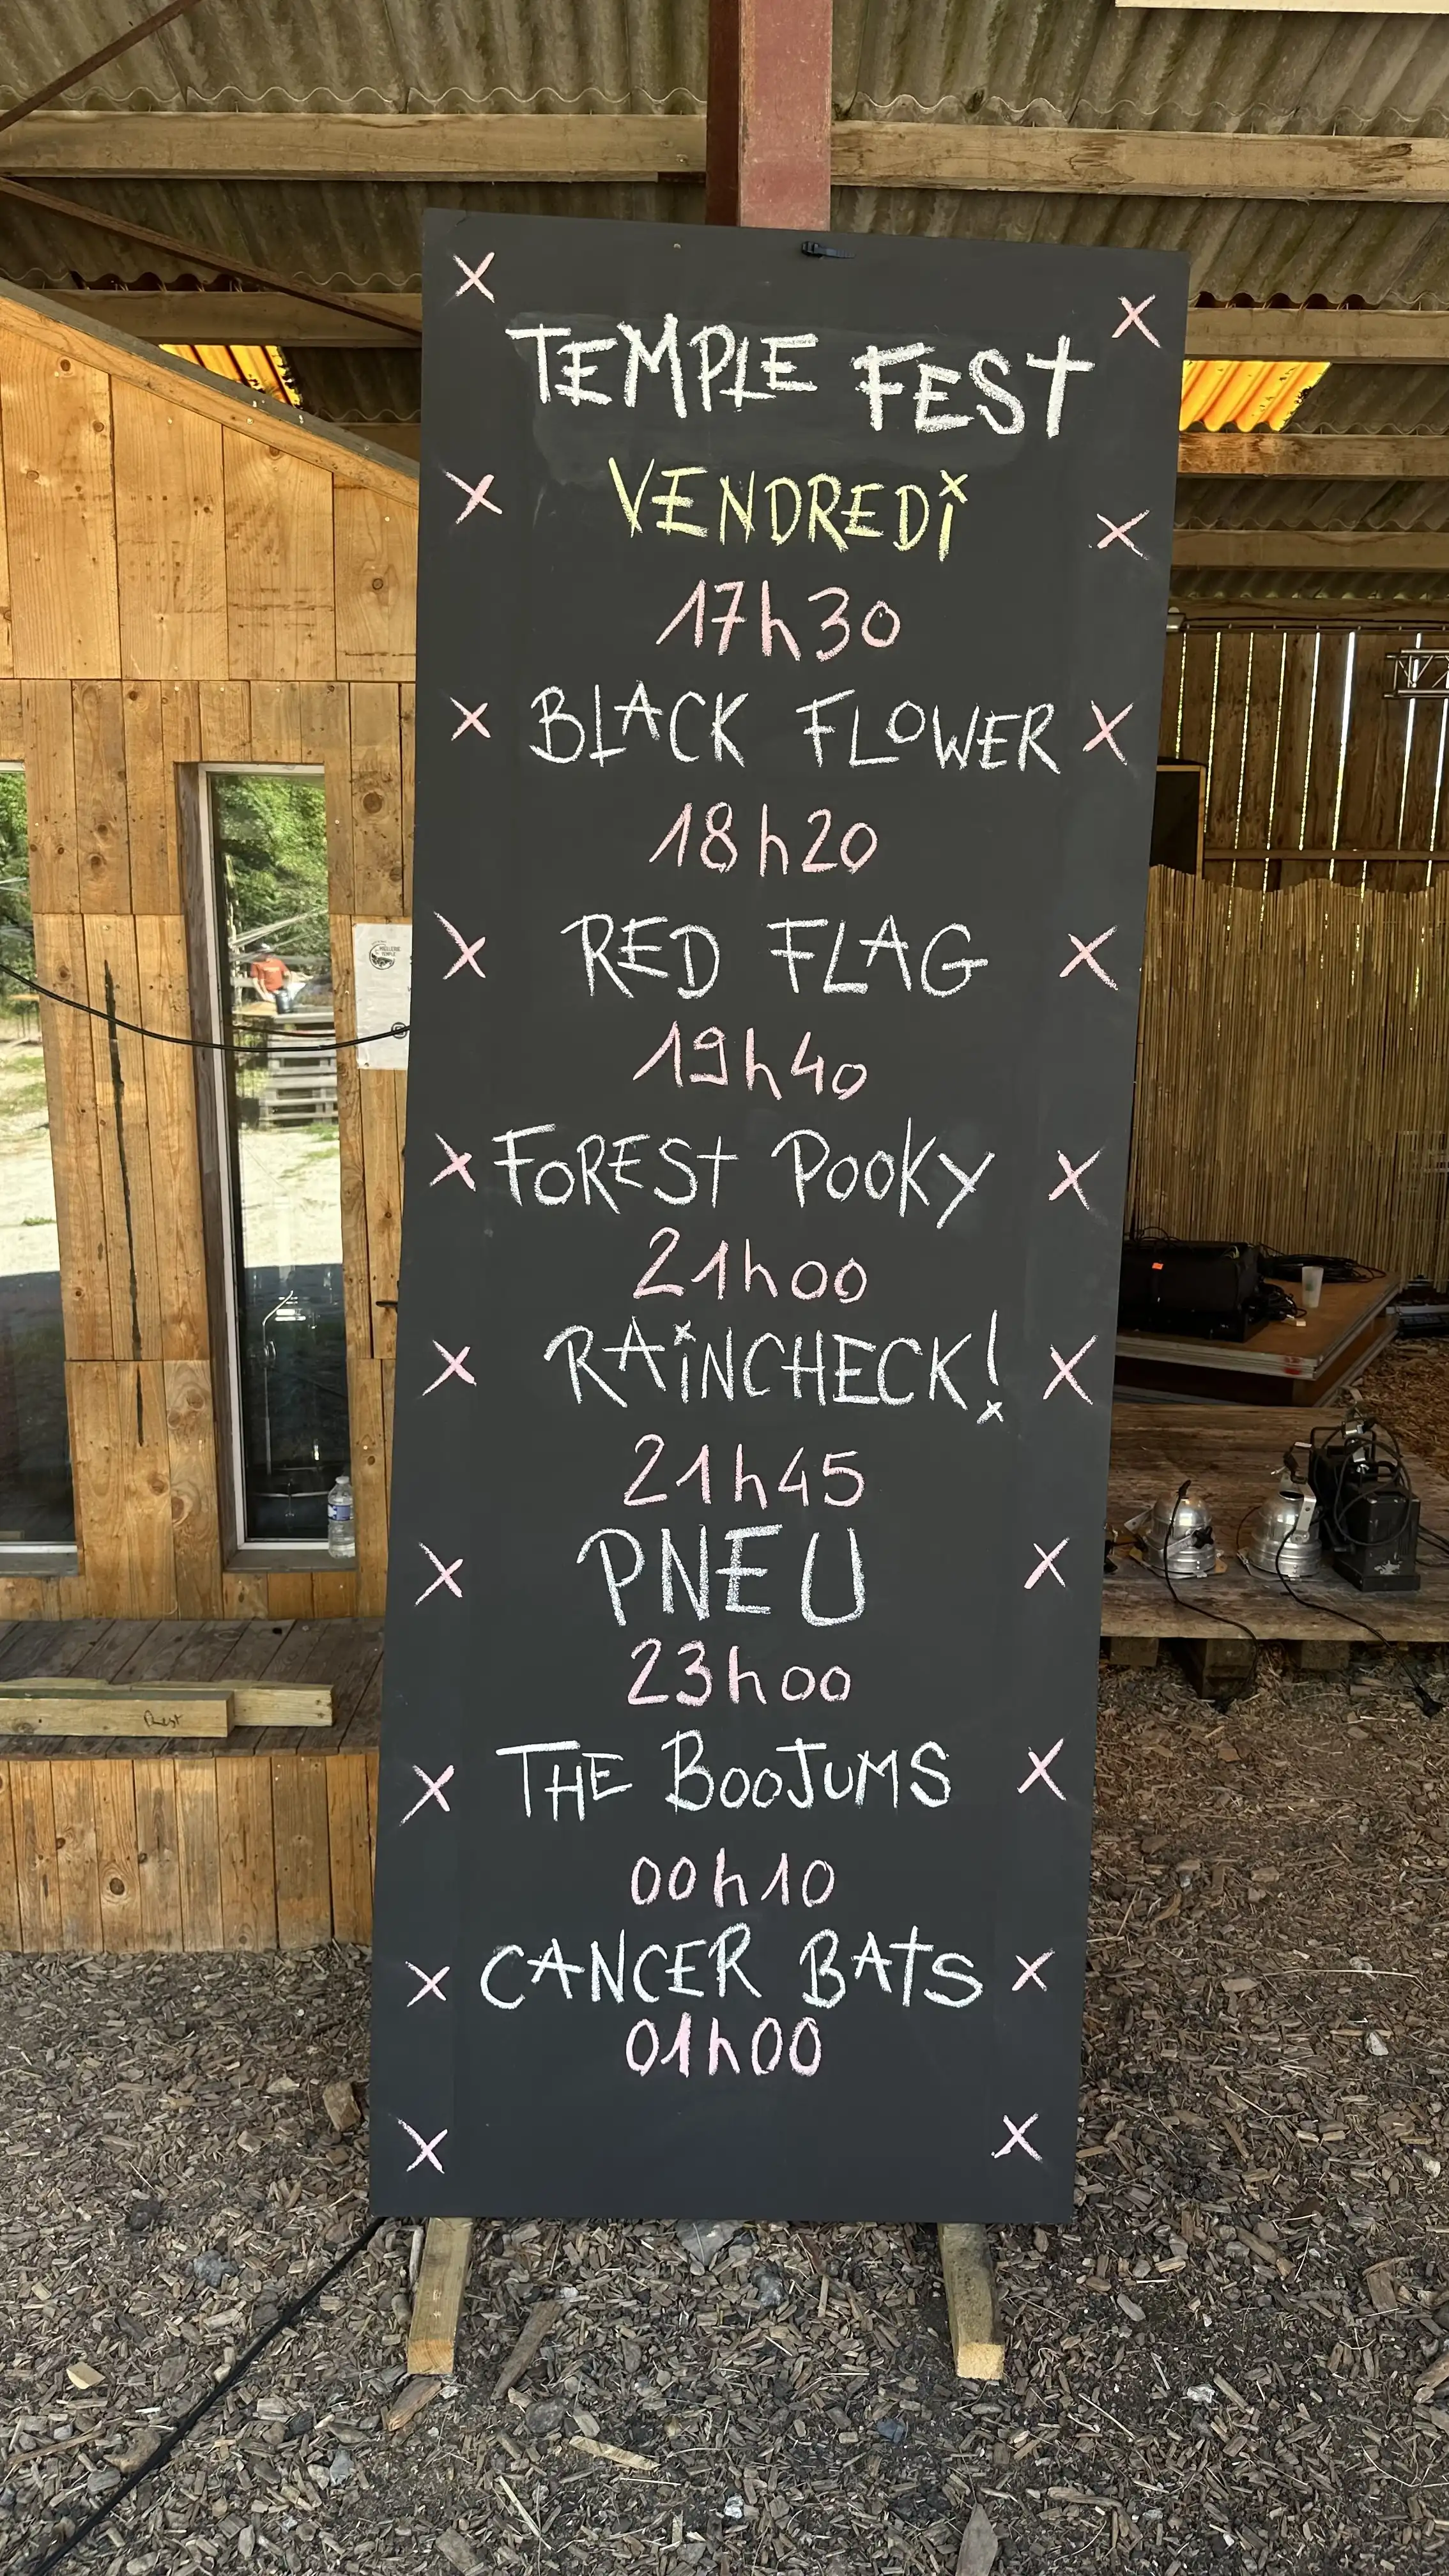 TEMPLE FEST
VENDREDi
17h30
BLACK FLOWER
18h20
RED FLAG
19h40
FOREST POOKY
21h00
RAiNCHECK!
21h45
PNEU
23h00
THE BOOJUMS
00h10
CANCER BATS
01h00